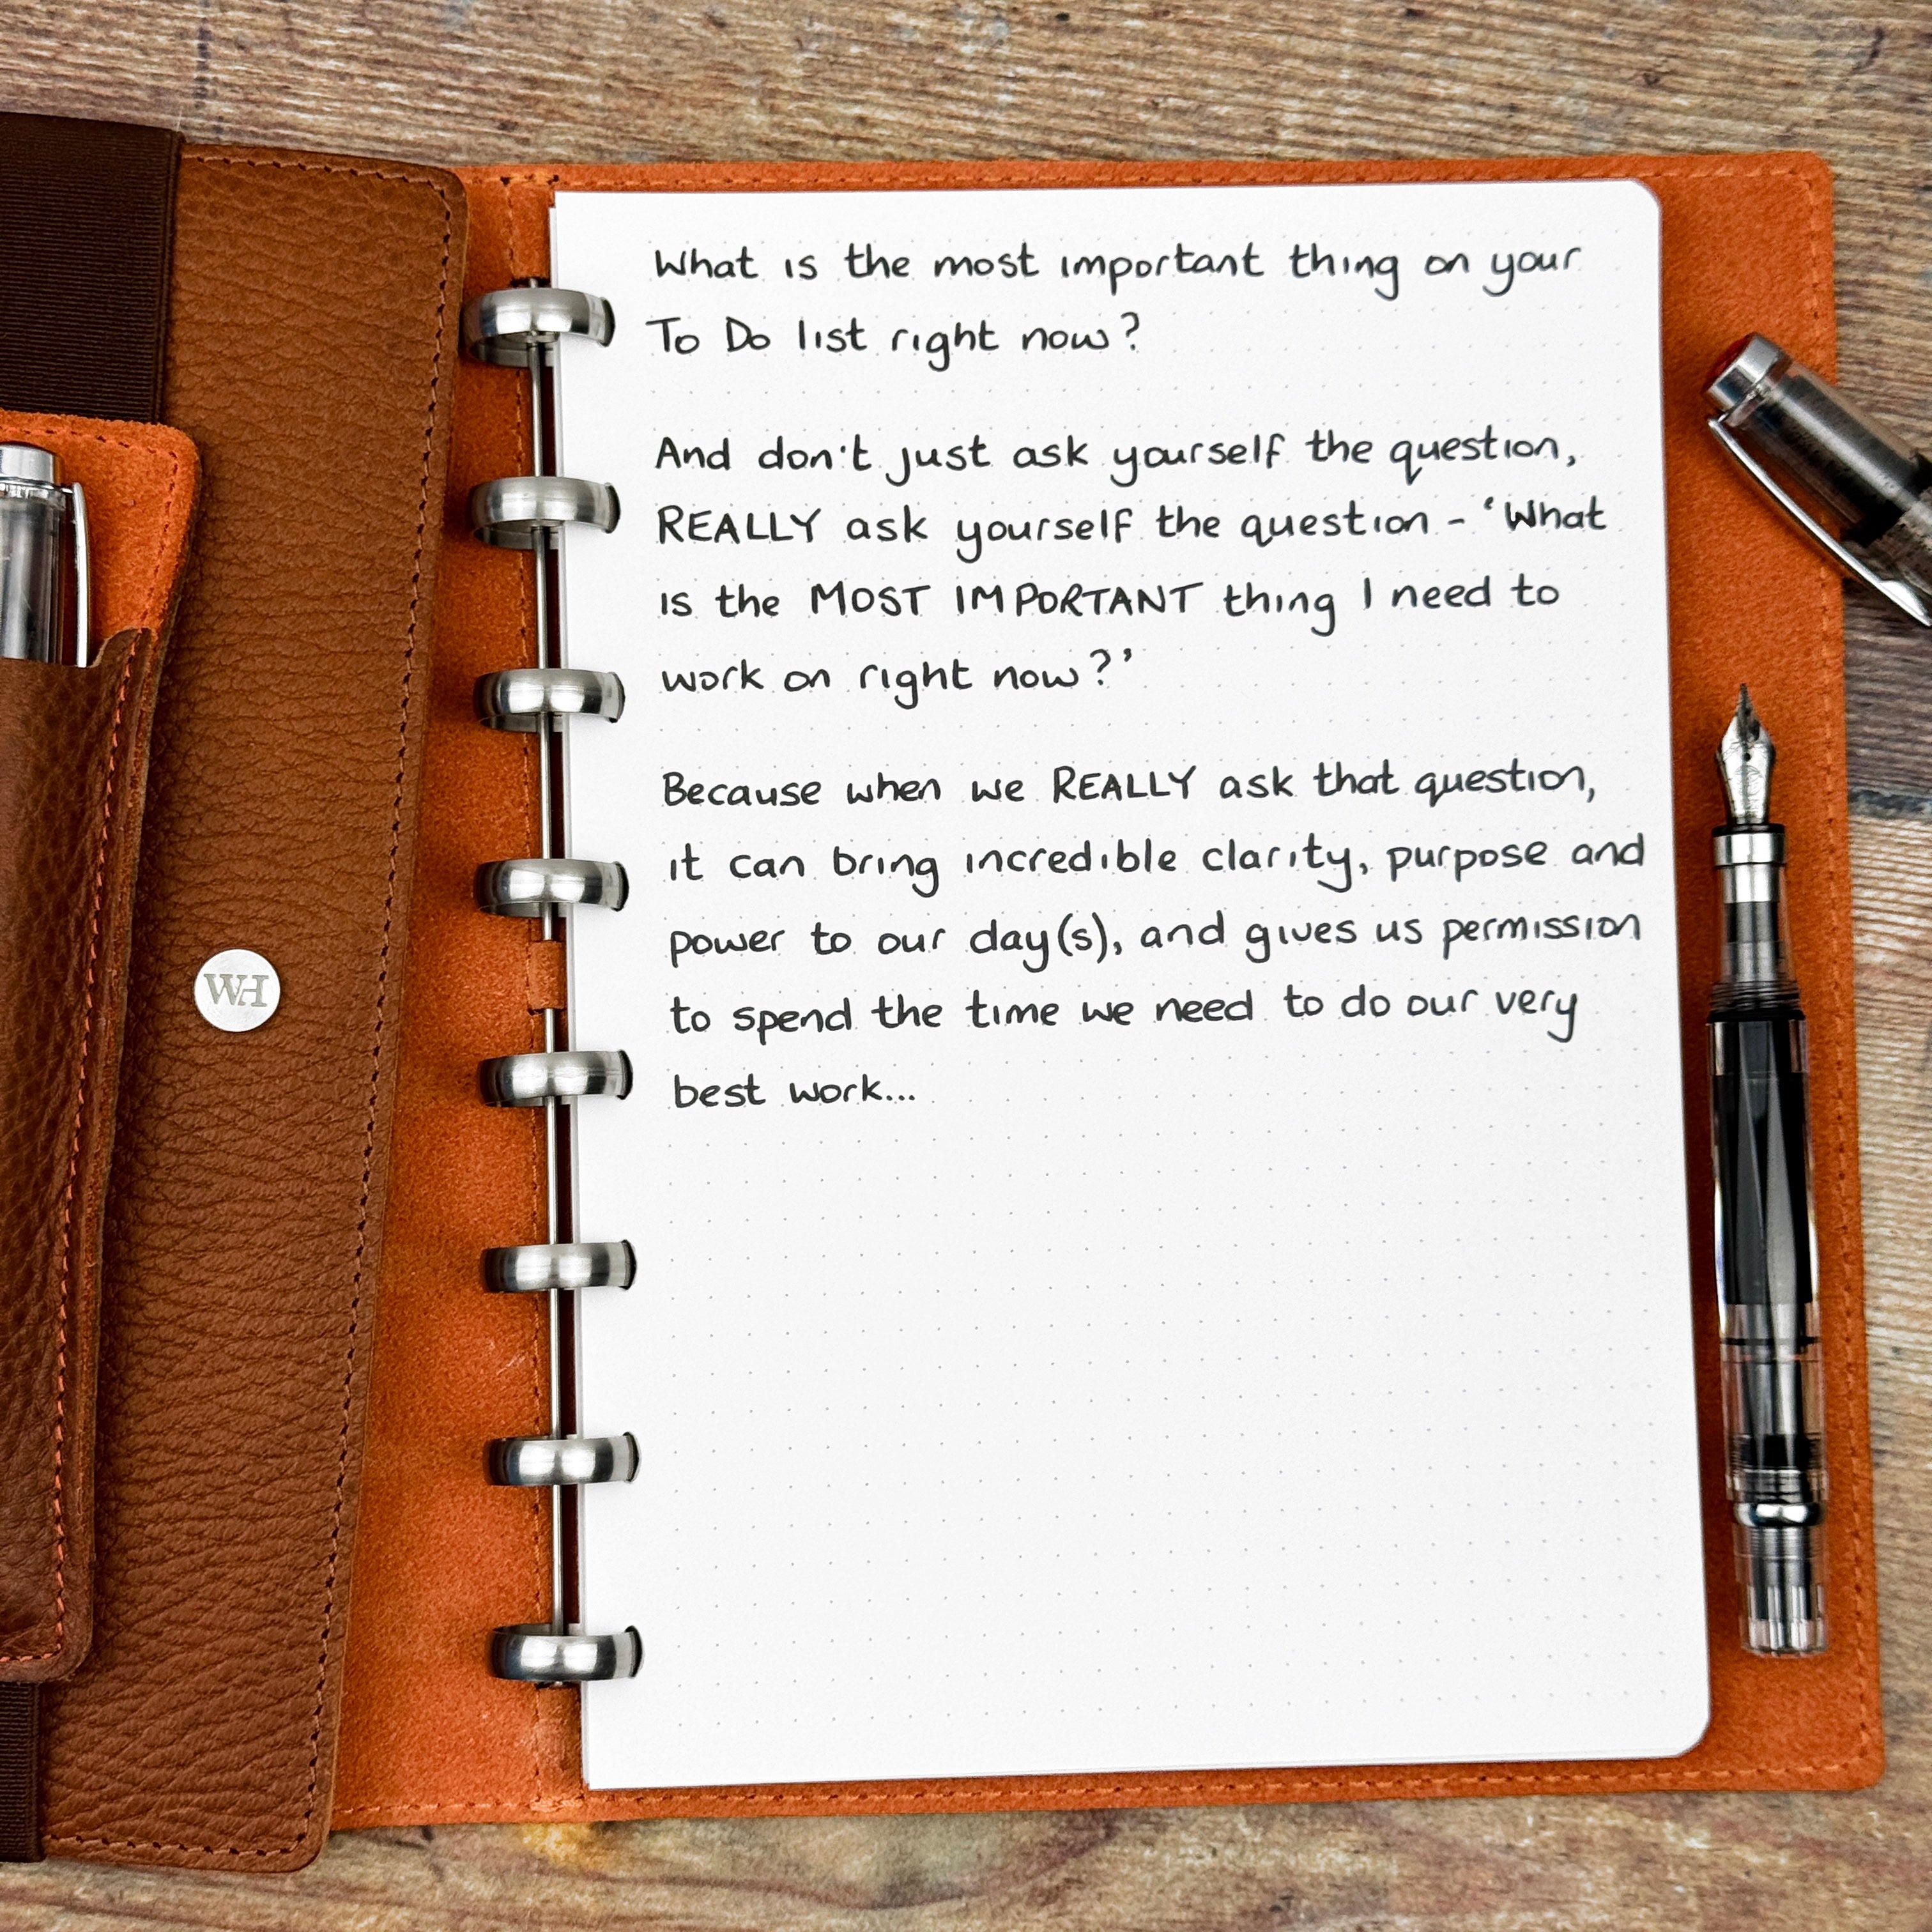 What is the most important thing on your
To Do list right now?
And don't just ask yourself the question,
REALLY ask yourself the question - 'What
is the MOST IMPORTANT thing I need to
work on right now?'
Because when we REALLY ask that question,
it can bring incredible clarity, purpose and
power to our day(s), and gives us permission
to spend the time we need to do our very
best work...
WH